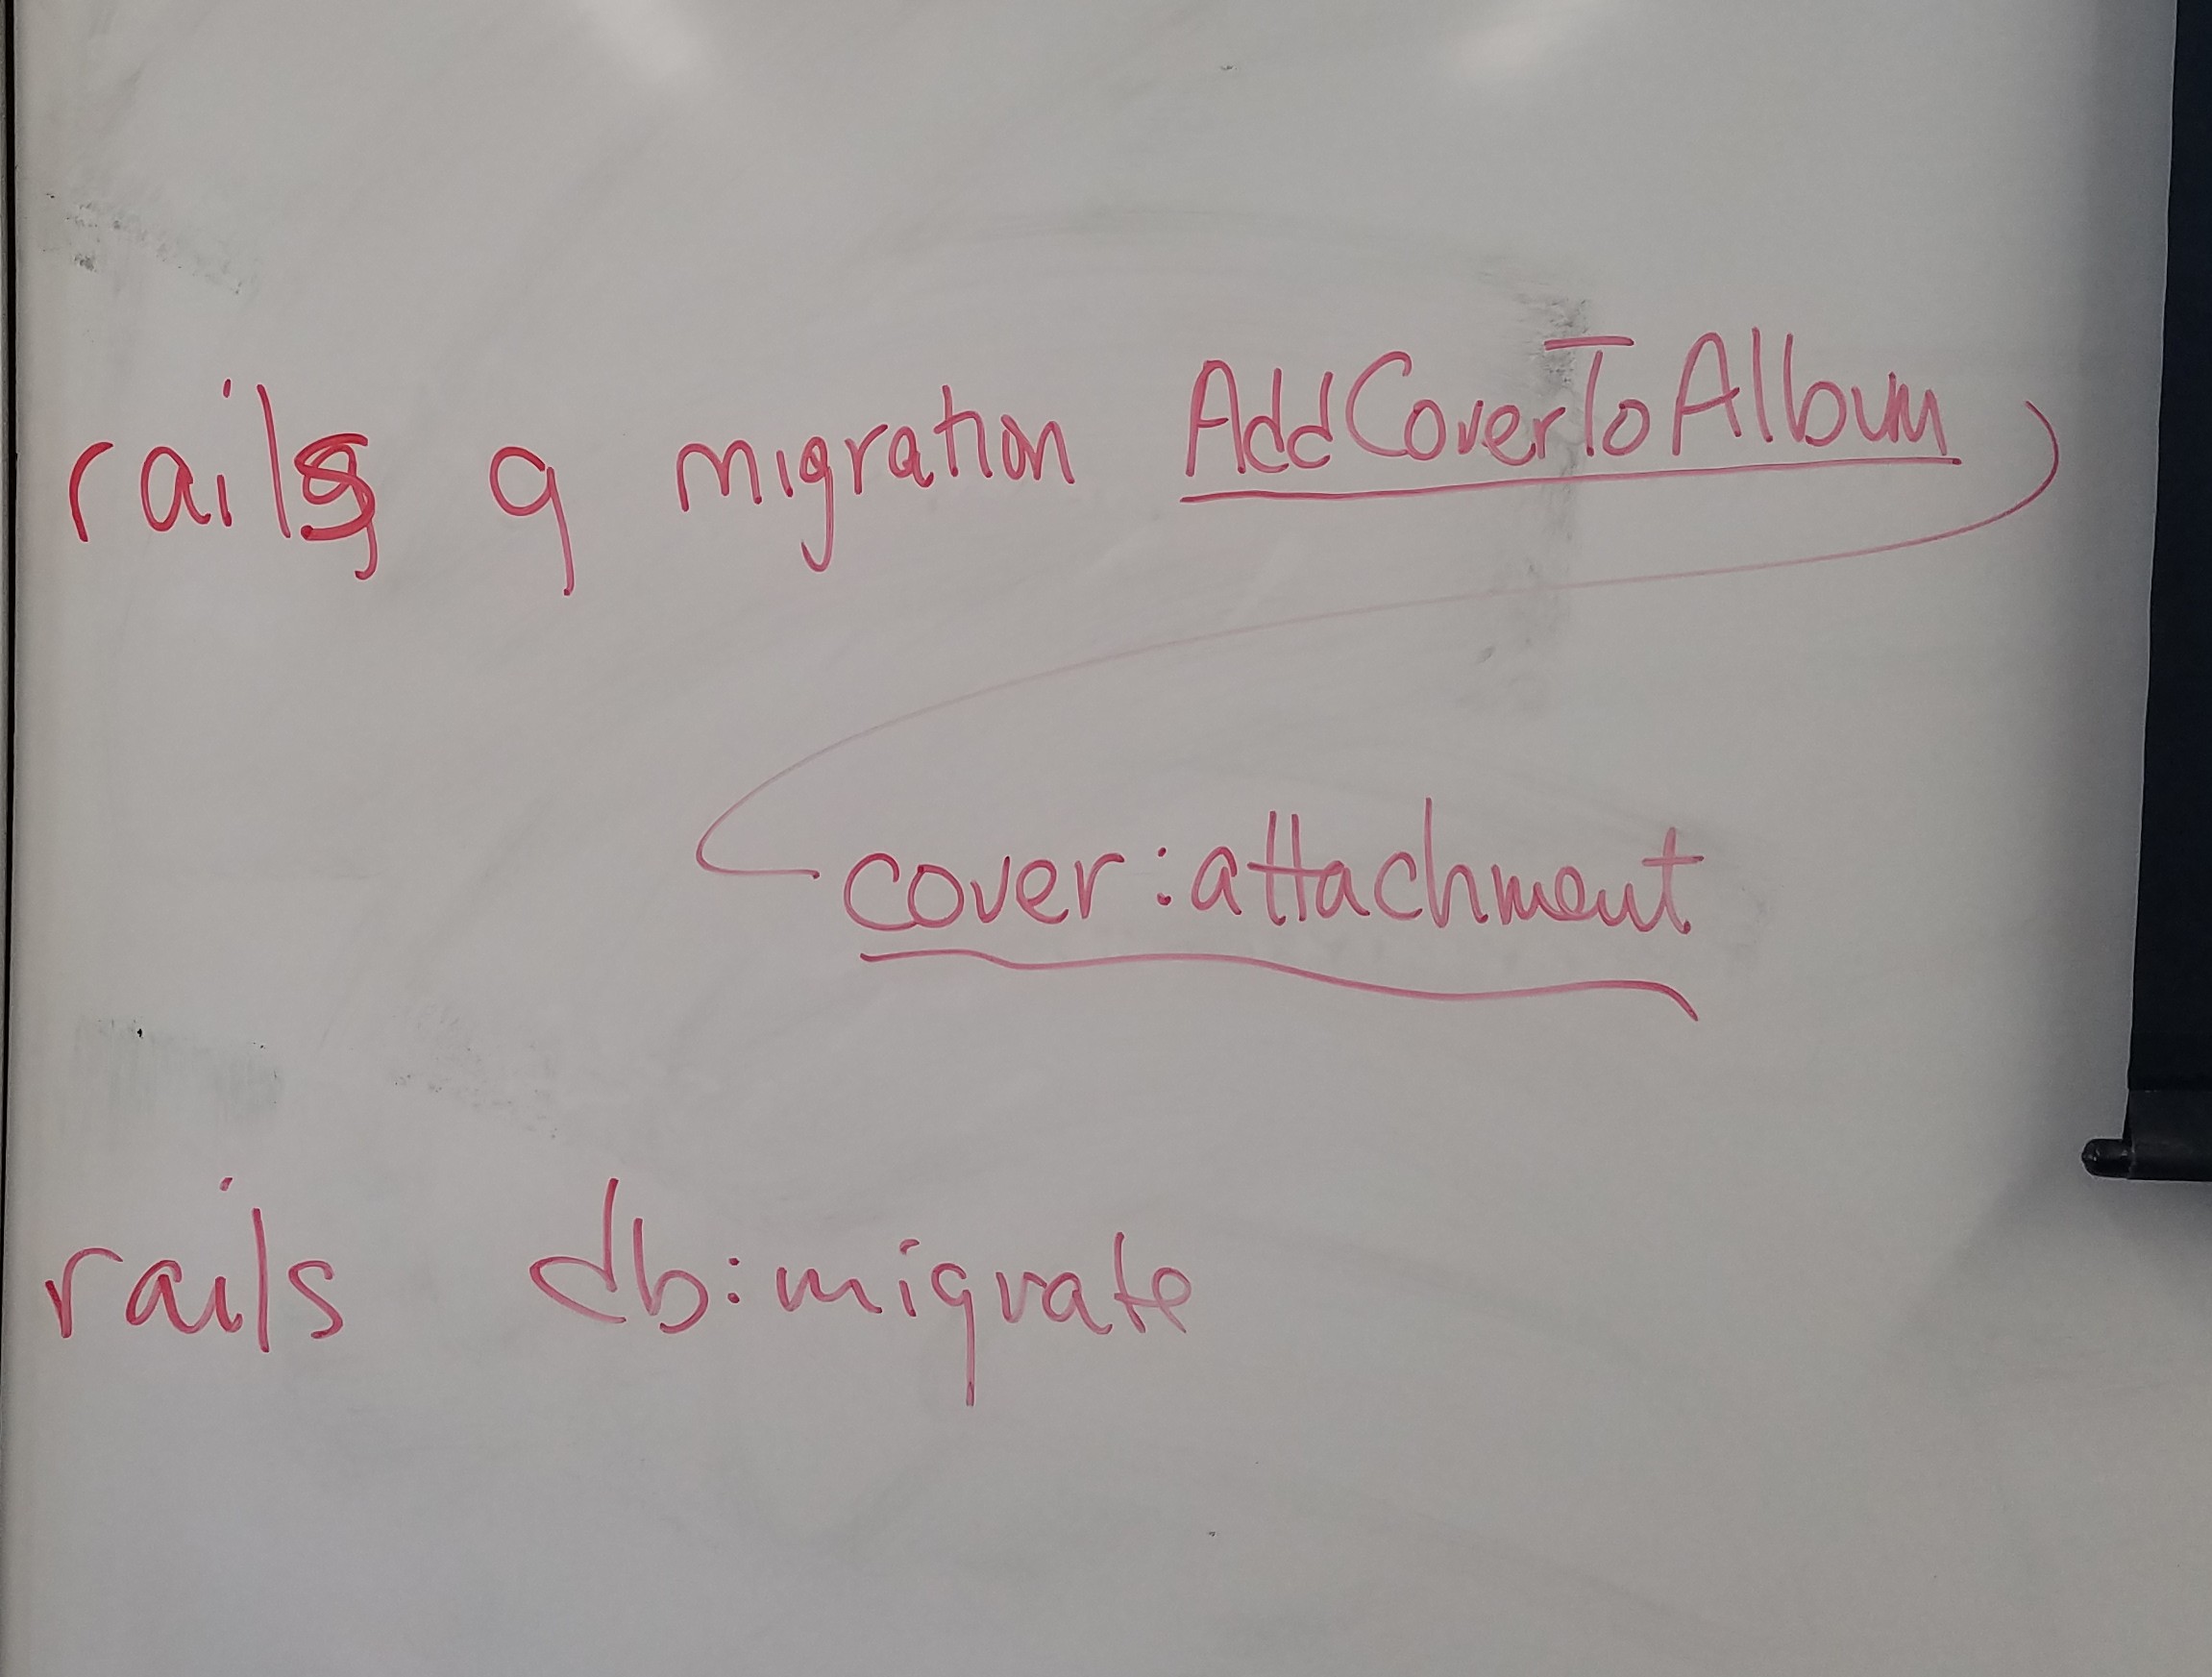 rails g migration AddCoverToAlbum
cover:attachment
rails db:migrate